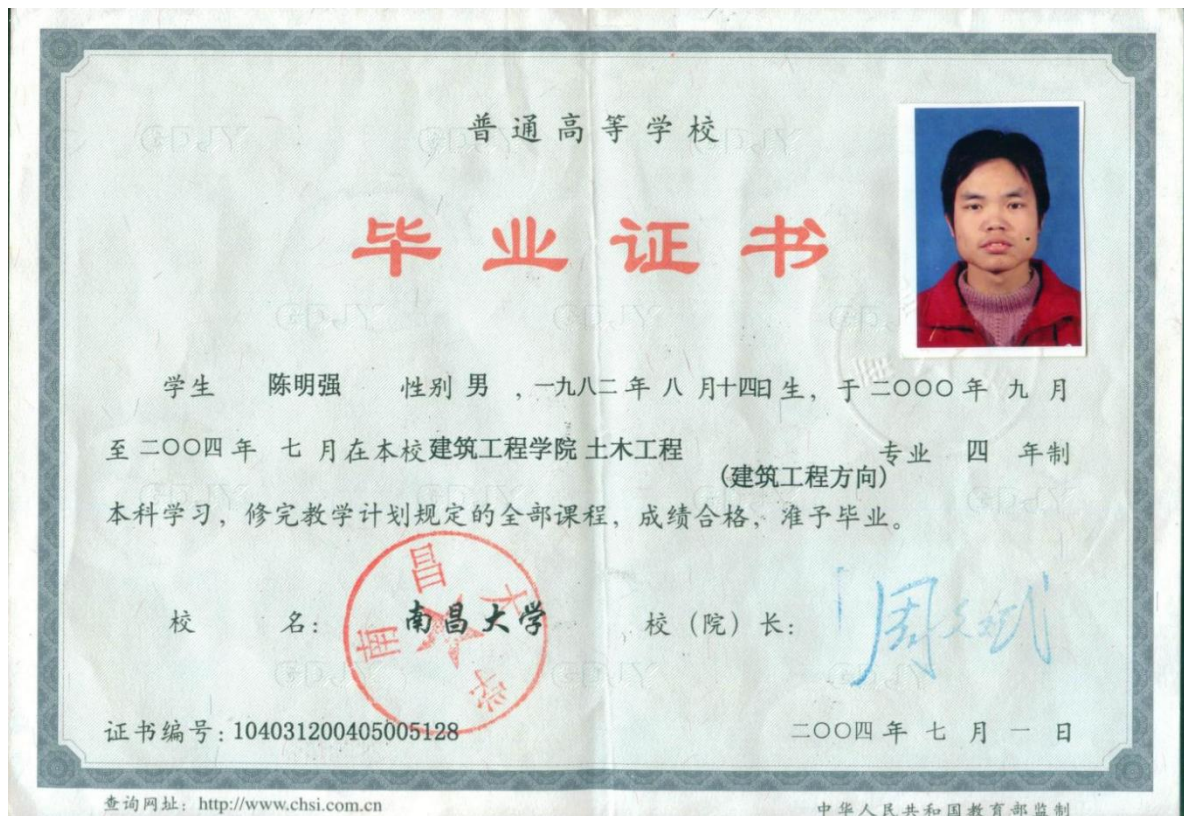 普通高等学校
毕业证书
学生 陈明强 性别 男 ，一九八二年 八 月十四日生，于二〇〇〇年 九 月
至二〇〇四年 七 月在本校建筑工程学院 土木工程 专业 四 年制
(建筑工程方向)
本科学习，修完教学计划规定的全部课程，成绩合格，准予毕业。
校 名： 南昌大学 校（院）长： 周文斌
南昌大学
证书编号：104031200405005128 二〇〇四年 七 月 一 日
查询网址：http://www.chsi.com.cn 中华人民共和国教育部监制